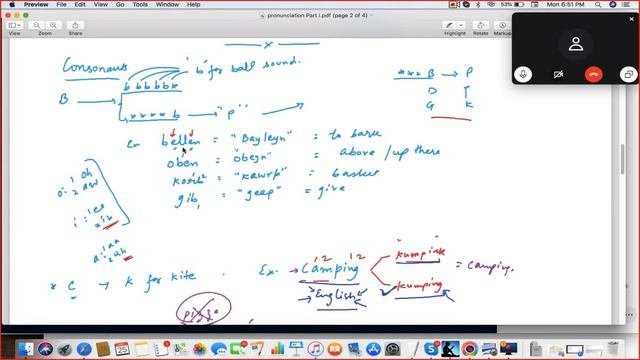 Preview File Edit View Go Tools Window Help
53% Mon 6:51 PM
pronunciation Part I.pdf (page 2 of 4)
x
Consonants
b b b b b x
"b" for ball sound.
B
x x x x b → "p"
x x x B → P
D T
G K
bellen = "Bayleyn" = to bark
oben = "obeyn" = above / up there
korb = "kawrp" = basket
gib = "geep" = give
o: 1 oh
2 aw
i: 1 ee
2 ih
a: 1 aa
2 uh
* C → K for kite.
Ex. → Camping
1 2 1 2
→ English ←
"kumpink"
kumping
= camping.